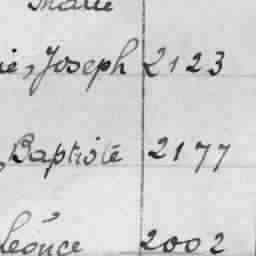 Marie
ie, Joseph 2123
, Baptiste 2177
Léonce 2002